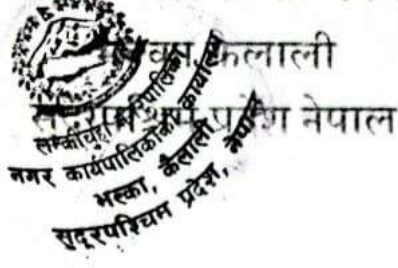 कैलाली
प्रदेश नेपाल
लम्कीचुहा नगरपालिका
नगर कार्यपालिकाको कार्यालय
भस्का, कैलाली
सुदूरपश्चिम प्रदेश, नेपाल